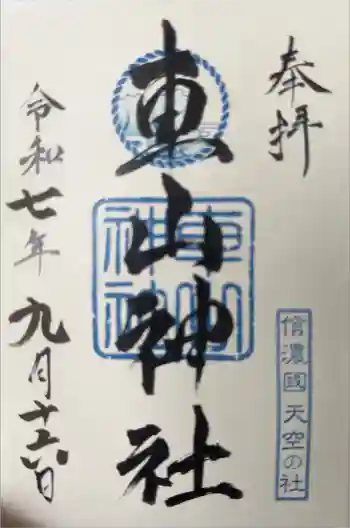 奉拝
信濃國 天空の社
車山神社
車山神社
令和七年九月十六日